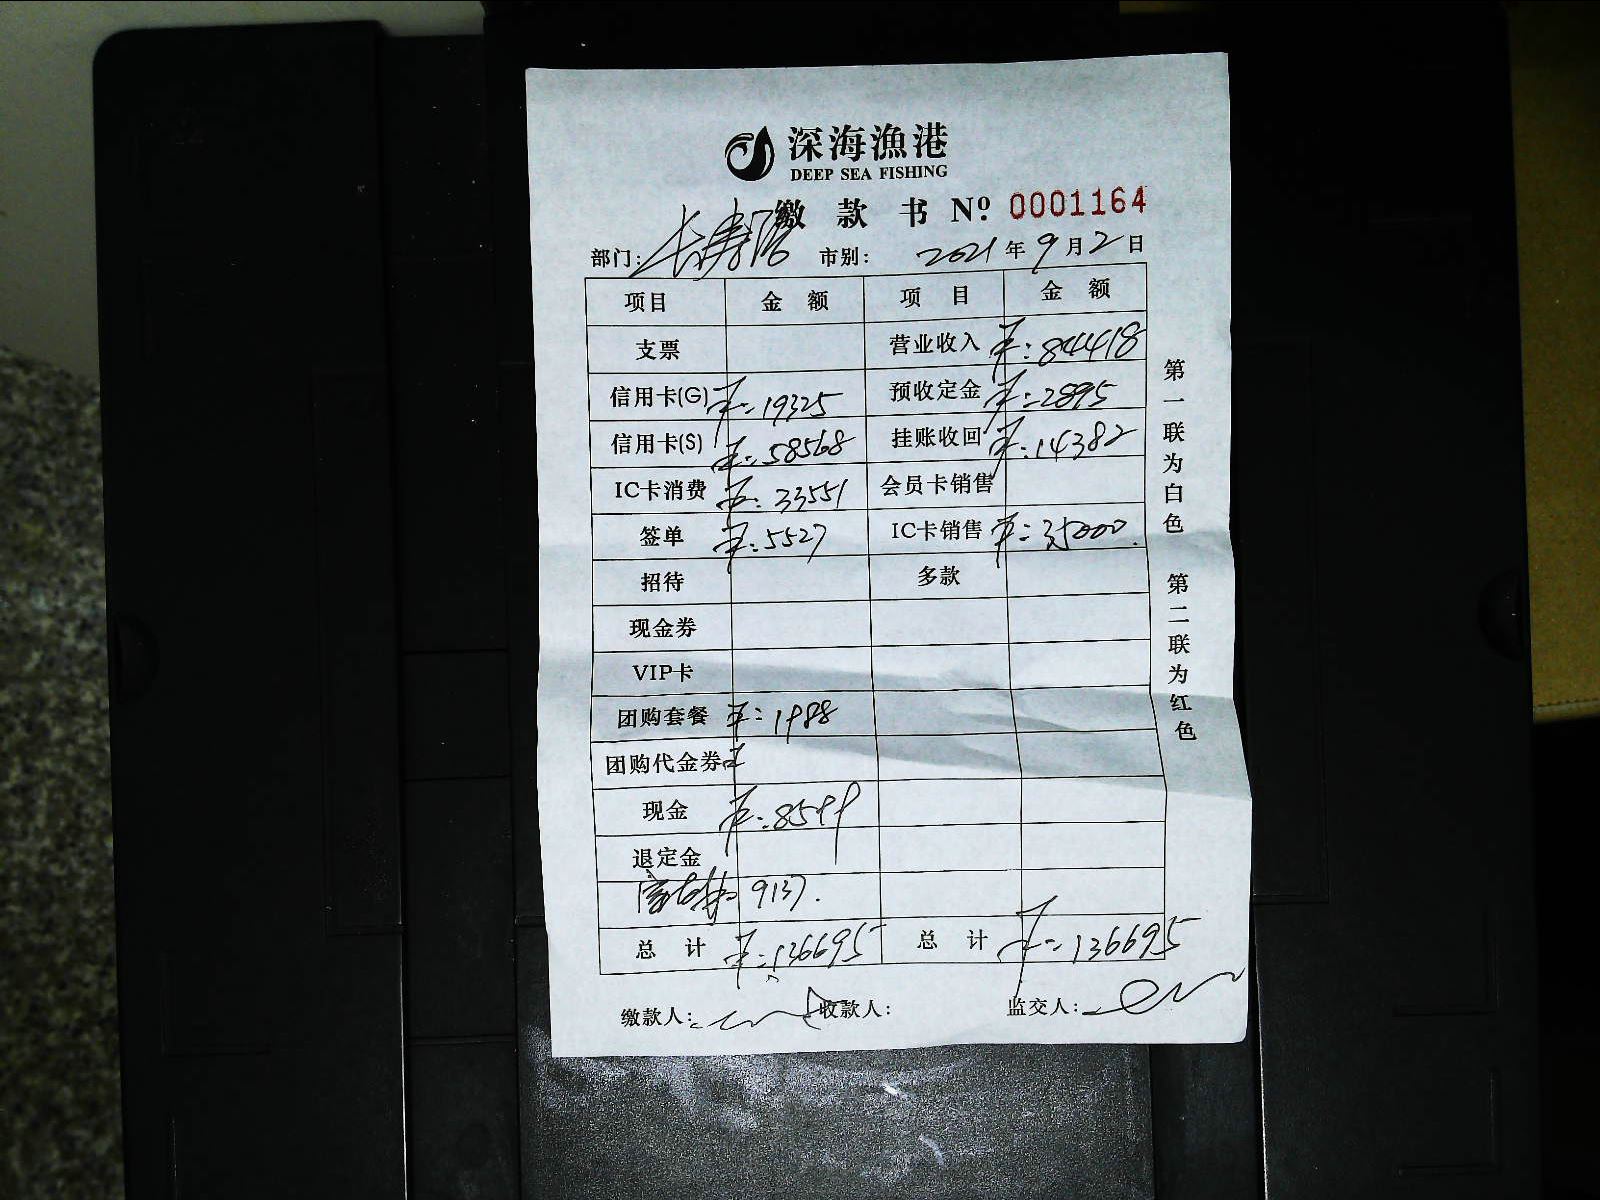 深海漁港
DEEP SEA FISHING
缴款书 Nº: 0001164
部门: 长寿路 市别: 2021年9月2日
项目 金额 项目 金额
支票 营业收入 ¥:84418
信用卡(G) ¥:19325 预收定金 ¥:2895
信用卡(S) ¥:58568 挂账收回 ¥:14382
IC卡消费 ¥:33551 会员卡销售
签单 ¥:5527 IC卡销售 ¥:35000.
招待 多款
现金券
VIP卡
团购套餐 ¥:1988
团购代金券 ¥
现金 ¥:8599
退定金
9137.
总计 ¥:136695 总计 ¥:136695
缴款人: 收款人: 监交人:
第一联为白色 第二联为红色